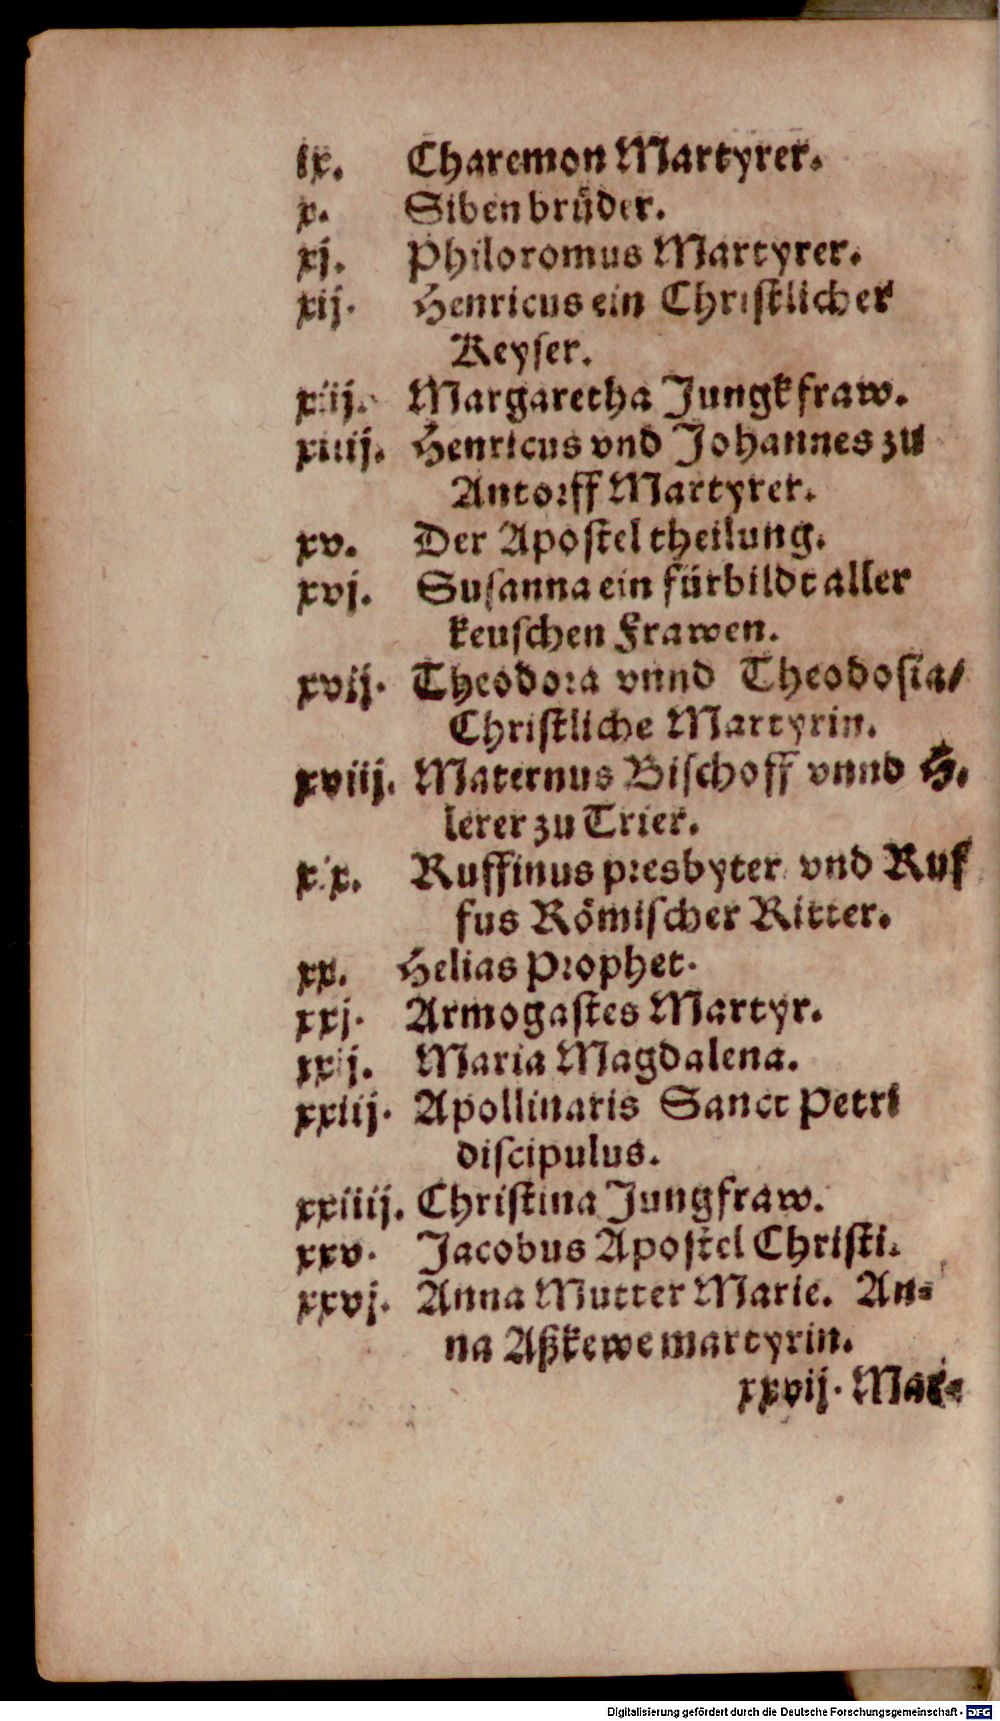 ix. Charemon Martyrer.
x. Siben brüder.
xj. Philoromus Martyrer.
xij. Henricus ein Christlicher
Keyser.
xiij. Margaretha Jungkfraw.
xiiij. Henricus vnd Johannes zu
Antorff Martyrer.
xv. Der Apostel theilung.
xvj. Susanna ein fürbildt aller
keuschen Frawen.
xvij. Theodora vnnd Theodosia/
Christliche Martyrin.
xviij. Maternus Bischoff vnnd H.
lerer zu Trier.
xix. Ruffinus presbyter vnd Ruf
fus Römischer Ritter.
xx. Helias Prophet.
xxj. Armogastes Martyr.
xxij. Maria Magdalena.
xxiij. Apollinaris Sanct Petri
discipulus.
xxiiij. Christina Jungfraw.
xxv. Jacobus Apostel Christi.
xxvj. Anna Mutter Marie. An-
na Aßkewe martyrin.
xxvij. Mar-
Digitalisierung gefördert durch die Deutsche Forschungsgemeinschaft - DFG